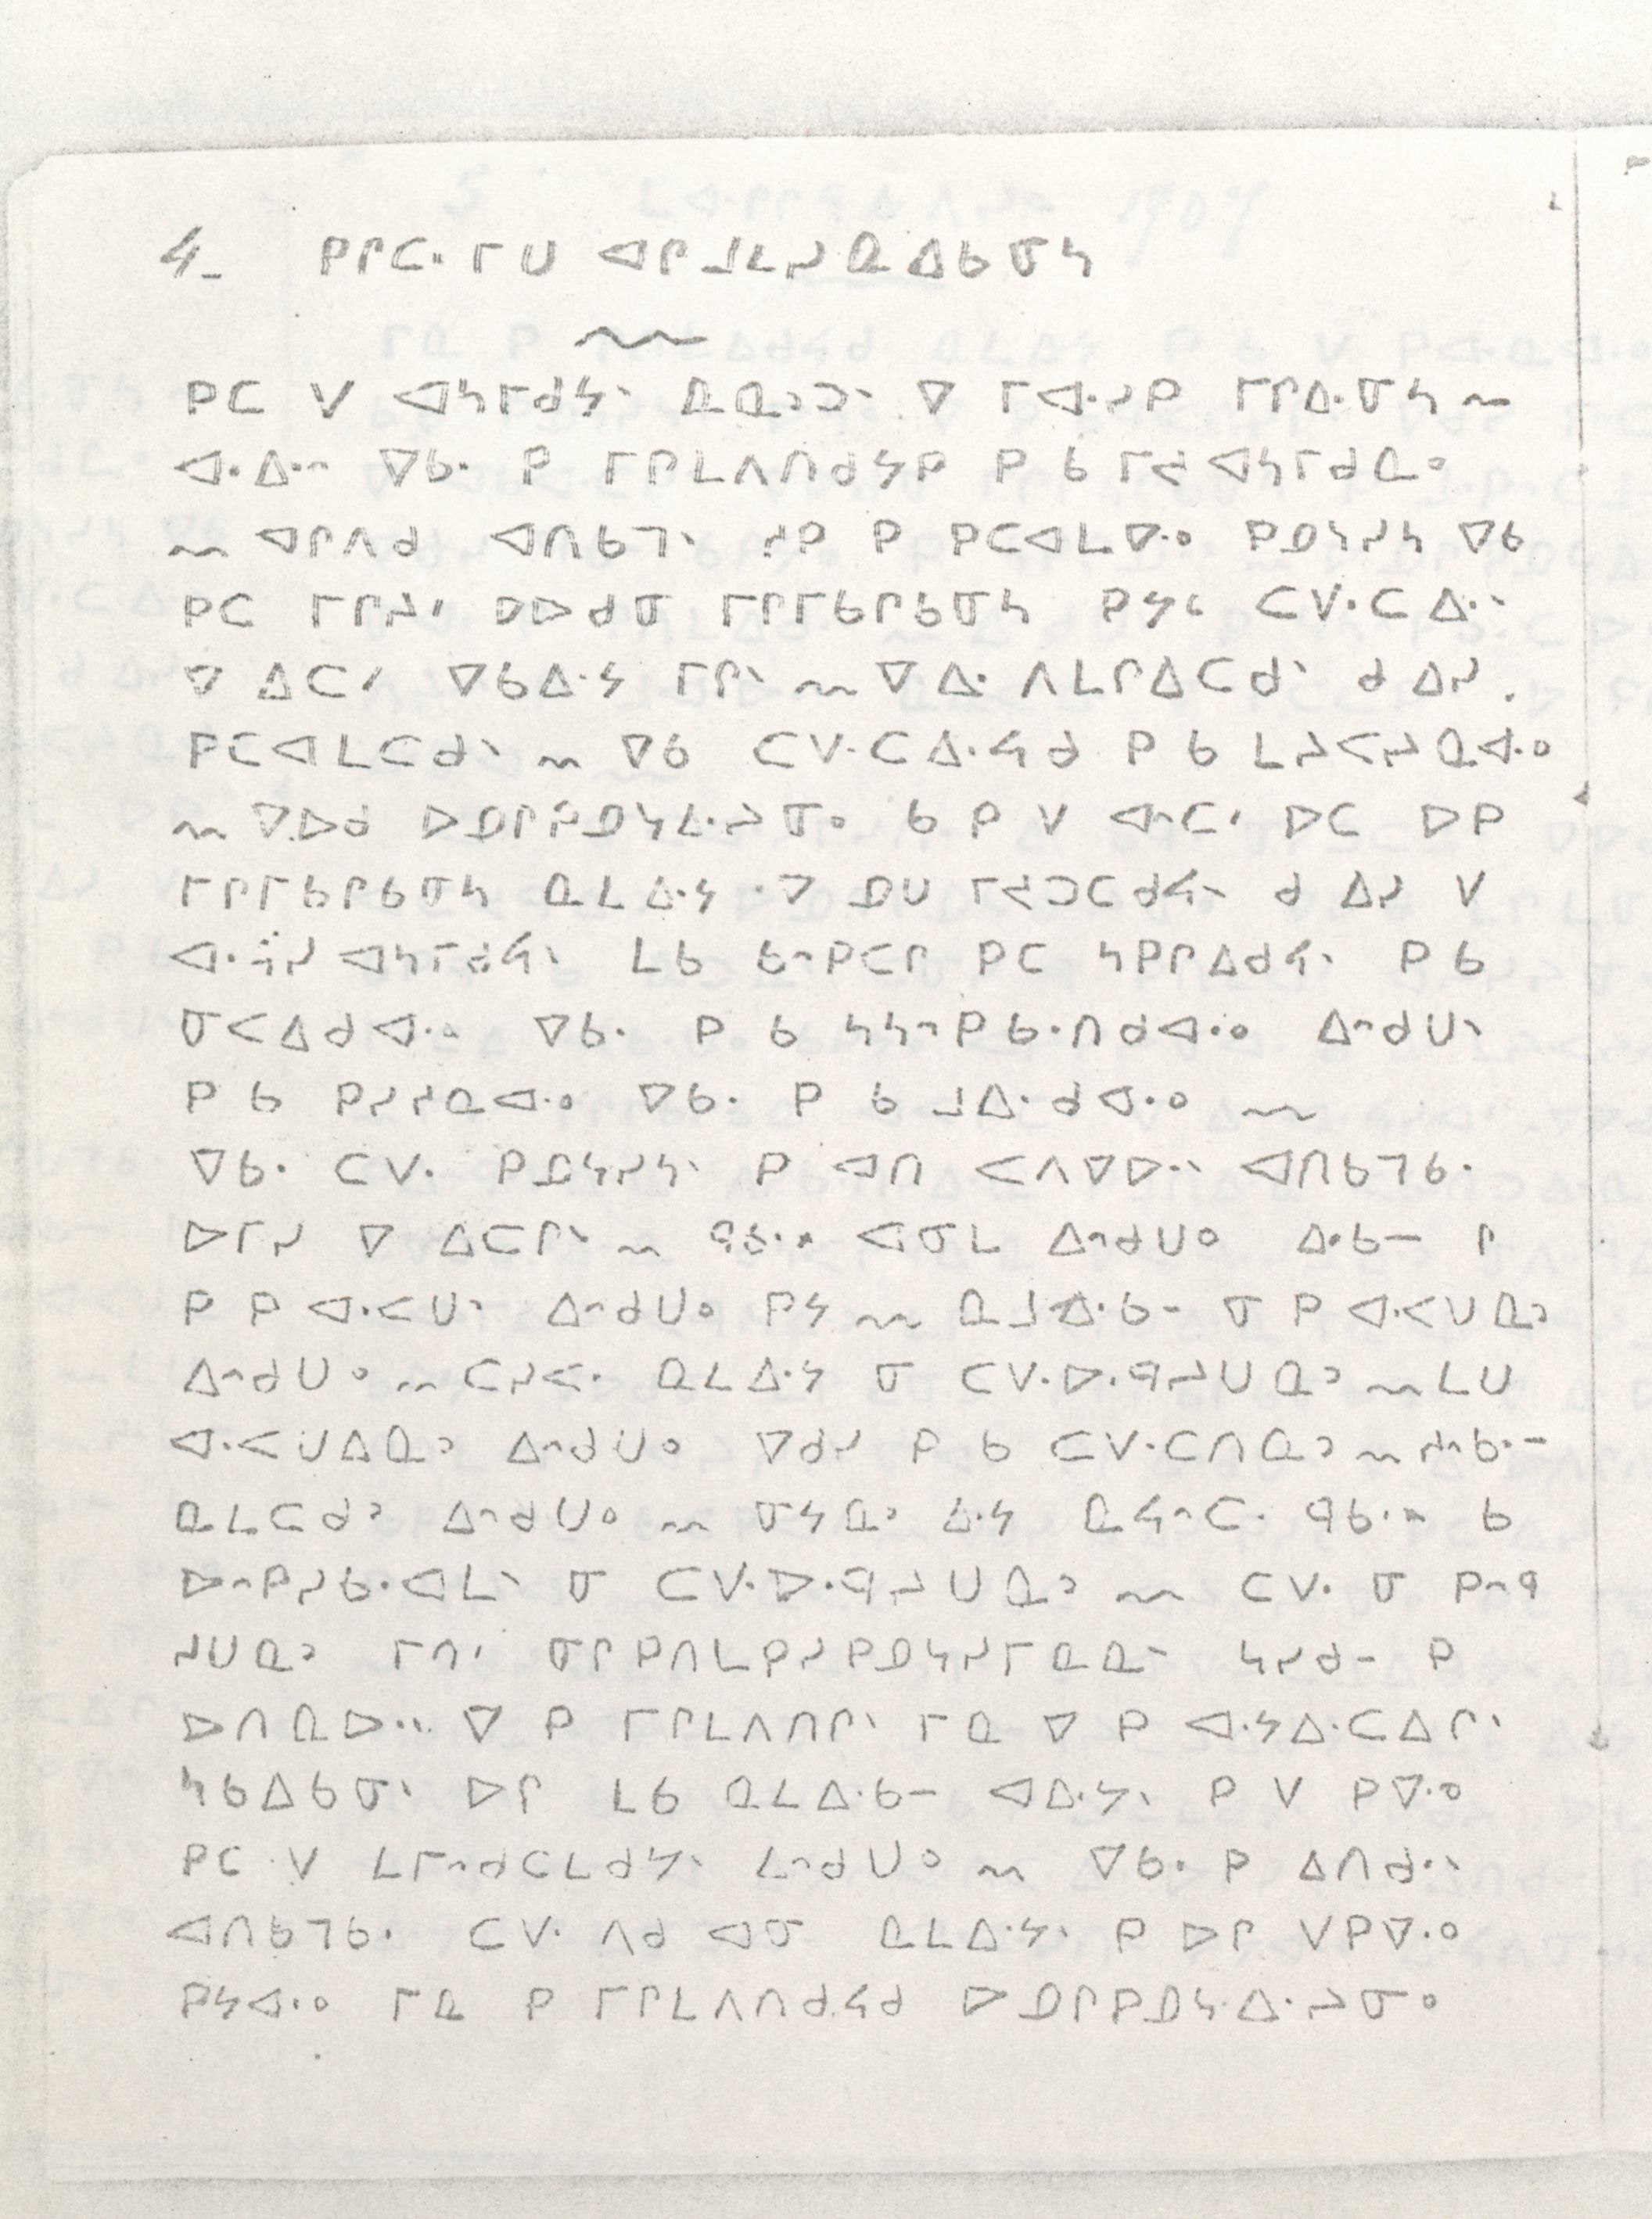 4- ᑭᒋᑕᐧ ᒥᑌ ᐊᒋᒧᒪᓱᓇᐃᑲᓂᓴ
ᑭᑕ ᐯ ᐊᓴᒥᑯᔭᐠ ᓇᓇᐣᑐᐠ ᐁ ᒥᐊᐧᓱᑭ ᒥᒋᐃᐧᓂᓴ ~
ᐊᐧᐃᐧᐢ ᐁᑲᐧ ᑭ ᒥᒋᒪᐱᑎᑯᔭᑭ ᑭ ᑲ ᒥᔪ ᐊᓴᒥᑯᓇᐤ
~ ᐊᒋᐱᑯ ᐊᑎᑲᒣᐠ ᓱᑭ ᑭ ᑭᑕᐊᒪᐁᐧᐤ ᑭᓄᓴᓱᓴ ᐁᑲ
ᑭᑕ ᒥᒋᓱᐟ ᐅᐅᑯᓂ ᒥᒋᒥᑲᒋᑲᓂᓴ ᑭᔭᒼ ᑕᐯᐧᑕᐃᐧᐠ
ᐁ ᐃᑕᐟ ᐁᑲᐃᐧᔭ ᒥᒋᐠ ~ ᐁ ᐃᐧ ᐱᒪᒋᐃᑕᑯᐠ ᑯ ᐃᓯ .
ᑭᑕᐊᒪᑕᑯᐠ ~ ᐁᑲ ᑕᐯᐧᑕᐃᐧᔭᑯ ᑭ ᑲ ᒪᓱᐸᓱᓇᐊᐧᐤ
~ ᐁᐅᑯ ᐅᓄᒋᑭᓄᓴᒪᐧᓱᓂᐤ ᑲ ᑭ ᐯ ᐊᐧᑕᐟ ᐅᑕ ᐅᑭ
ᒥᒋᒥᑲᒋᑲᓂᓴ ᓇᒪᐃᐧᔭ ᐁ ᓄᑌ ᒥᔪᑐᑕᑯᔭᐠ ᑯ ᐃᓯ ᐯ
ᐊᐧᓴᓯ ᐊᓴᒥᑯᔭᐠ ᒪᑲ ᑲᐢᑭᑕᒋ ᑭᑕ ᓴᑭᒋᐃᑯᔭᐠ ᑭ ᑲ
ᓂᐸᐃᑯᐊᐧᐤ ᐁᑲᐧ ᑭ ᑲ ᓴᓴᐢᑭᑲᐧᑎᑯᐊᐧᐤ ᐃᐢᑯᑌᐠ
ᑭ ᑲ ᑭᓯᓯᓇᐊᐧᐤ ᐁᑲᐧ ᑭ ᑲ ᒧᐃᐧᑯᐊᐧᐤ ~
ᐁᑲᐧ ᑕᐯᐧ ᑭᓄᓴᓱᓴᐠ ᑭ ᐊᑎ ᐸᐱᐁᐅᐧᐠ ᐊᑎᑲᒣᑲᐧ
ᐅᒥᓯ ᐁ ᐃᑕᒋᐠ ~ ᑫᑲᐧᕽ ᐊᓂᒪ ᐃᐢᑯᑌᐤ ᐃᐧᑲᐨ ᒋ
ᑭ ᑭ ᐊᐧᐸᑌᐣ ᐃᐢᑯᑌᐤ ᑭᔭ ~ ᓇᒧᐃᐧᑲᐨ ᓂ ᑭ ᐊᐧᐸᑌᓇᐣ
ᐃᐢᑯᑌᐤ ~ ᑕᓯᐸᐧ ᓇᒪᐃᐧᔭ ᓂ ᑕᐯᐧᐅᐧᑫᓱᑌᓇᐣ ~ ᒪᑌ
ᐊᐧᐸᑌᐃᓇᐣ ᐃᐢᑯᑌᐤ ᐁᑯᓯ ᑭ ᑲ ᑕᐯᐧᑕᑎᓇᐣ ~ ᓱᐢᑲᐧᐨ
ᓇᒪᑕᑯᐣ ᐃᐢᑯᑌᐤ ~ ᓂᔭᓇᐣ ᐃᐧᔭ ᓇᔭᐢᑕᐧ ᑫᑲᐧᕽ ᑲ
ᐅᐢᑭᓯᑲᐧᐊᒪᐠ ᓂ ᑕᐯᐧᐅᐧᑫᓱᑌᓇᐣ ~ ᑕᐯᐧ ᓂ ᑭᐢᑫ
ᓱᑌᓇᐣ ᒥᑎᐟ ᓂᒋᑭᑎᒪᑭᓯᑭᓄᓴᓱᒥᓇᓇᐠ ᓴᓯᑯᐨ ᑭ
ᐅᑎᓇᐅᐧᐠ ᐁ ᑭ ᒥᒋᒪᐱᑎᒋᐠ ᒥᓇ ᐁ ᑭ ᐊᐧᔭᐃᐧᑕᐃᒋᐠ
ᓴᑲᐃᑲᓂᐠ ᐅᒋ ᒪᑲ ᓇᒪᐃᐧᑲᐨ ᐊᐃᐧᔭᐠ ᑭ ᐯ ᑭᐁᐧᐤ
ᑭᑕ ᐯ ᒪᒥᐢᑯᑕᒪᑯᔭᐠ ᐃᐢᑯᑌᐤ ~ ᐁᑲᐧ ᑭ ᐃᑎᑯᐧᐠ
ᐊᑎᑲᒣᑲᐧ ᑕᐯᐧ ᐱᑯ ᐊᓂ ᓇᒪᐃᐧᔭᐠ ᑭ ᐅᒋ ᐯᑭᐁᐧᐤ
ᑭᔭᐊᐧᐤ ᒥᓇ ᑭ ᒥᒋᒪᐱᑎᑯᔭᑯ ᐅᓄᒋᑭᓄᓴᐃᐧᓱᓂᐤ